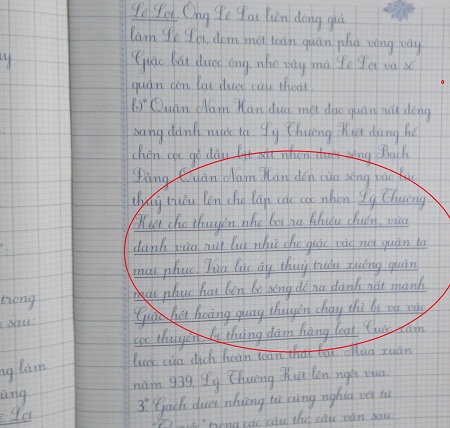 Lê Lợi. Ông Lê Lai liền đóng giả
làm Lê Lợi, đem một toán quân phá vòng vây.
Giặc bắt được ông, nhờ vậy mà Lê Lợi và số
quân còn lại được cứu thoát.
b)* Quân Nam Hán đưa một đạo quân rất đông
sang đánh nước ta. Lý Thường Kiệt dùng kế
chôn cọc gỗ đầu bịt sắt nhọn dưới sông Bạch
Đằng. Quân Nam Hán đến cửa sông vào lúc
thuỷ triều lên che lấp các cọc nhọn. Lý Thường
Kiệt cho thuyền nhẹ bơi ra khiêu chiến, vừa
đánh vừa rút lui nhử cho giặc vào nơi quân ta
mai phục. Vừa lúc ấy thuỷ triều xuống, quân
mai phục hai bên bờ sông đổ ra đánh rất mạnh.
Giặc hốt hoảng quay thuyền chạy thì bị va vào
cọc thuyền bị thủng đắm hàng loạt. Cuộc xâm
lược của địch hoàn toàn thất bại. Mùa xuân
năm 939, Lý Thường Kiệt lên ngôi vua.
3* Gạch dưới những từ cùng nghĩa với từ
trong các câu thơ, câu văn sau
trong
sau:
làm
Lợi